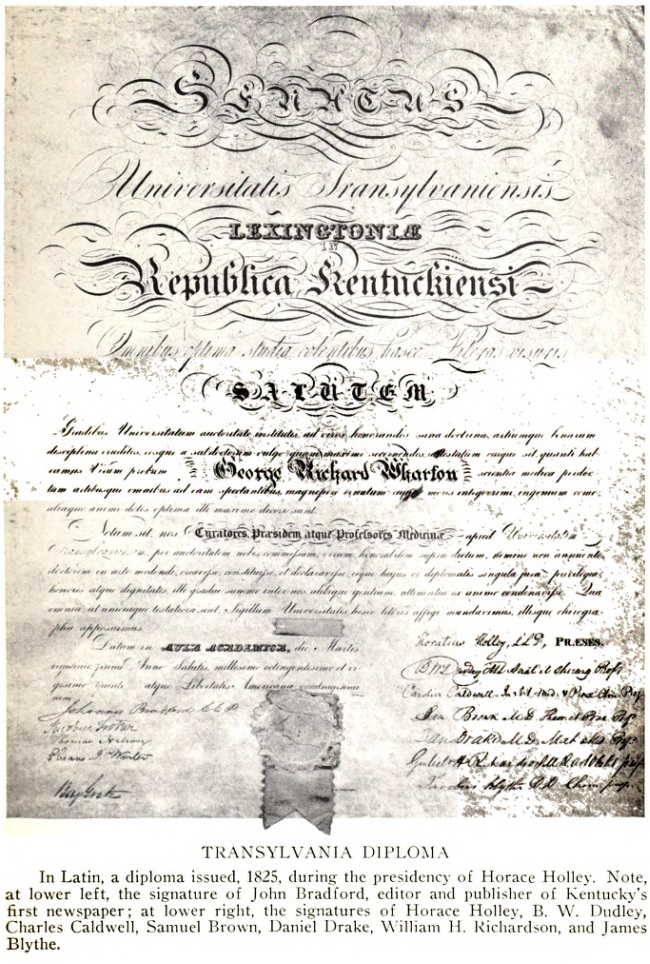 SENATUS
Universitatis Transylvaniensis
LEXINGTONIÆ
IN
Republica Kentuckiensi
Omnibus optima studia colentibus hasce Literas visuris
SALUTEM
Gradibus Universitatum auctoritate institutis ad viros honorandos sana doctrina, artiumque bonarum
disciplina eruditos, eosque a
camus Virum probum George Richard Wharton scientia medica
tam artibusque omnibus ad eam spectantibus magnopere ornatum mores integerrimi, ingenium
aliæque animi dotes optima illi maximo decori sunt.
Notum sit, nos Curatores, Præsidem atque Professores Medicinæ apud Universitatem
Transylvaniensem per auctoritatem nobis commissam, virum honorabilem supra dictum, domino
doctorem in arte medendi, creavisse, constituisse, et declaravisse, eique hujus vi diplomatis singula jura, privilegia,
honores atque dignitates, illo gradui summo inter nos ubique gentium
omnia, Sigillum Universitatis hisce literis affigi mandavimus, illisque chirogra-
pha apposuimus.
Datum in AULA ACADEMICA, die Martis
vicesimo primo Anno Salutis, millesimo octingentesimo et vi-
gesimo quinto atque Libertatis Americanæ
nono.
Johannes Bradford
Thomas
Horatius Holley, LLD, PRÆSES.
B W Dudley MD Anat et Chirurg Profr
Carolus Caldwell
Sam Brown M.D.
Dan Drake M.D. Mat
Richardson
Jacobus Blythe D.D Chem
TRANSYLVANIA DIPLOMA
In Latin, a diploma issued, 1825, during the presidency of Horace Holley. Note,
at lower left, the signature of John Bradford, editor and publisher of Kentucky's
first newspaper; at lower right, the signatures of Horace Holley, B. W. Dudley,
Charles Caldwell, Samuel Brown, Daniel Drake, William H. Richardson, and James
Blythe.